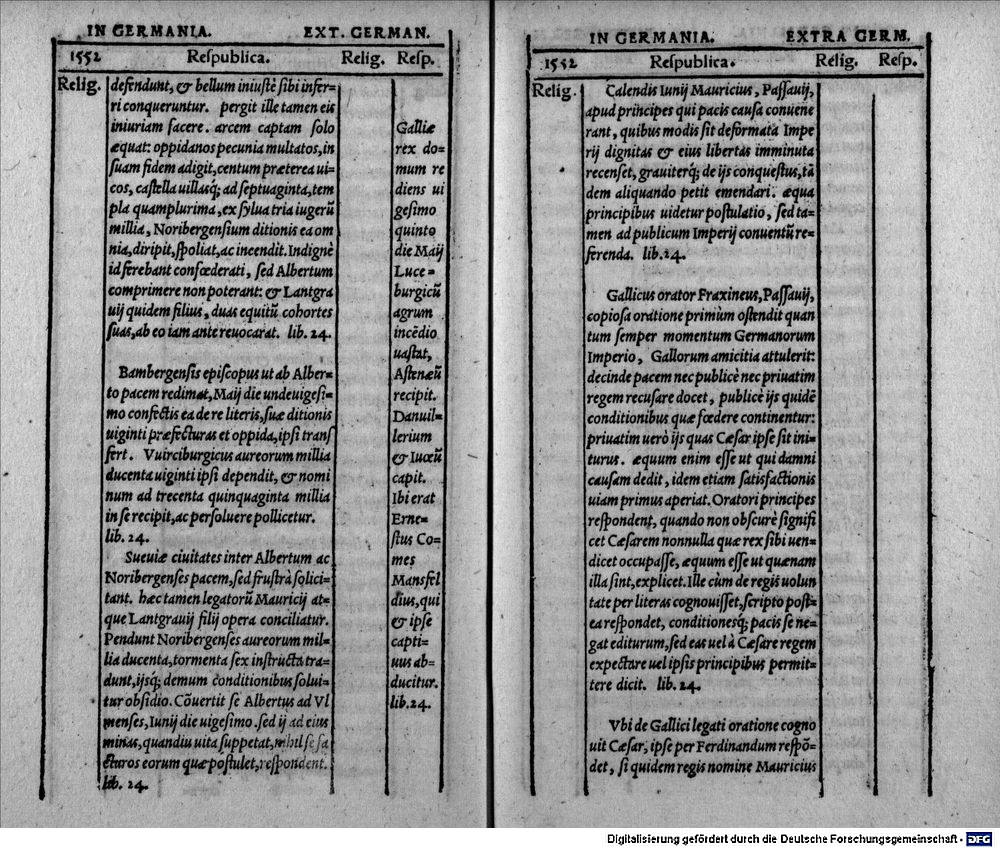 IN GERMANIA. EXT. GERMAN.
1552 Reſpublica. Relig. Reſp.
Relig.
defendunt, & bellum iniuſtè ſibi infer-
ri conqueruntur. pergit ille tamen eis
iniuriam facere. arcem captam ſolo
æquat: oppidanos pecunia multatos, in
ſuam fidem adigit, centum præterea ui-
cos, caſtella uillasq́; ad ſeptuaginta, tem
pla quamplurima, ex ſylua tria iugerũ
millia, Noribergenſium ditionis ea om
nia, diripit, ſpoliat, ac incendit. Indignè
id ferebant confœderati, ſed Albertum
comprimere non poterant: & Lantgra
uij quidem filius, duas equitũ cohortes
ſuas, ab eo iam ante reuocarat. lib. 24.
Bambergenſis epiſcopus ut ab Alber-
to pacem redimat, Maij die undeuigeſi-
mo confectis ea de re literis, ſuæ ditionis
uiginti præfecturas et oppida, ipſi tranſ
fert. Vuirciburgicus aureorum millia
ducenta uiginti ipſi dependit, & nomi
num ad trecenta quinquaginta millia
in ſe recipit, ac perſoluere pollicetur.
lib. 24.
Sueuiæ ciuitates inter Albertum ac
Noribergenſes pacem, ſed fruſtrà ſolici-
tant. hæc tamen legatorũ Mauricij at-
que Lantgrauij filij opera conciliatur.
Pendunt Noribergenſes aureorum mil-
lia ducenta, tormenta ſex inſtructa tra-
dunt, ijsq́; demum conditionibus ſolui-
tur obſidio. Cõuertit ſe Albertus ad Vl
menſes, Iunij die uigeſimo. ſed ij ad eius
minas, quandiu uita ſuppetat, nihil ſe fa
cturos eorum quæ póſtulet, reſpondent.
lib. 24.
Galliæ
rex do-
mum re
diens ui
geſimo
quinto
die Maij
Luce-
burgicũ
agrum
incẽdio
uaſtat,
Aſtenæũ
recipit.
Danuil-
lerium
& Iuoẽũ
capit.
Ibi erat
Erne-
ſtus Co-
mes
Mansfel
dius, qui
& ipſe
capti-
uus ab-
ducitur.
lib. 24.
IN GERMANIA. EXTRA GERM.
1552 Reſpublica. Relig. Reſp.
Relig.
Calendis Iunij Mauricius, Paſſauij,
apud principes qui pacis cauſa conuene
rant, quibus modis ſit deformata Impe
rij dignitas & eius libertas imminuta
recenſet, grauiterq́; de ijs conqueſtus, tã
dem aliquando petit emendari. æqua
principibus uidetur poſtulatio, ſed ta-
men ad publicum Imperij conuentũ re-
ferenda. lib. 24.
Gallicus orator Fraxineus, Paſſauij,
copioſa oratione primùm oſtendit quan
tum ſemper momentum Germanorum
Imperio, Gallorum amicitia attulerit:
decinde pacem nec publicè nec priuatim
regem recuſare docet, publicè ijs quidẽ
conditionibus quæ fœdere continentur:
priuatim uerò ijs quas Cæſar ipſe ſit ini-
turus. æquum enim eſſe ut qui damni
cauſam dedit, idem etiam ſatisfactionis
uiam primus aperiat. Oratori principes
reſpondent, quando non obſcurè ſignifi
cet Cæſarem nonnulla quæ rex ſibi uen-
dicet occupaſſe, æquum eſſe ut quænam
illa ſint, explicet. Ille cùm de regis uolun
tate per literas cognouiſſet, ſcripto poſt-
ea reſpondet, conditionesq́; pacis ſe ne-
gat editurum, ſed eas uel à Cæſare regem
expectare uel ipſis principibus permit-
tere dicit. lib. 24.
Vbi de Gallici legati oratione cogno
uit Cæſar, ipſe per Ferdinandum reſpõ-
det, ſi quidem regis nomine Mauricius
Digitalisierung gefördert durch die Deutsche Forschungsgemeinschaft - DFG